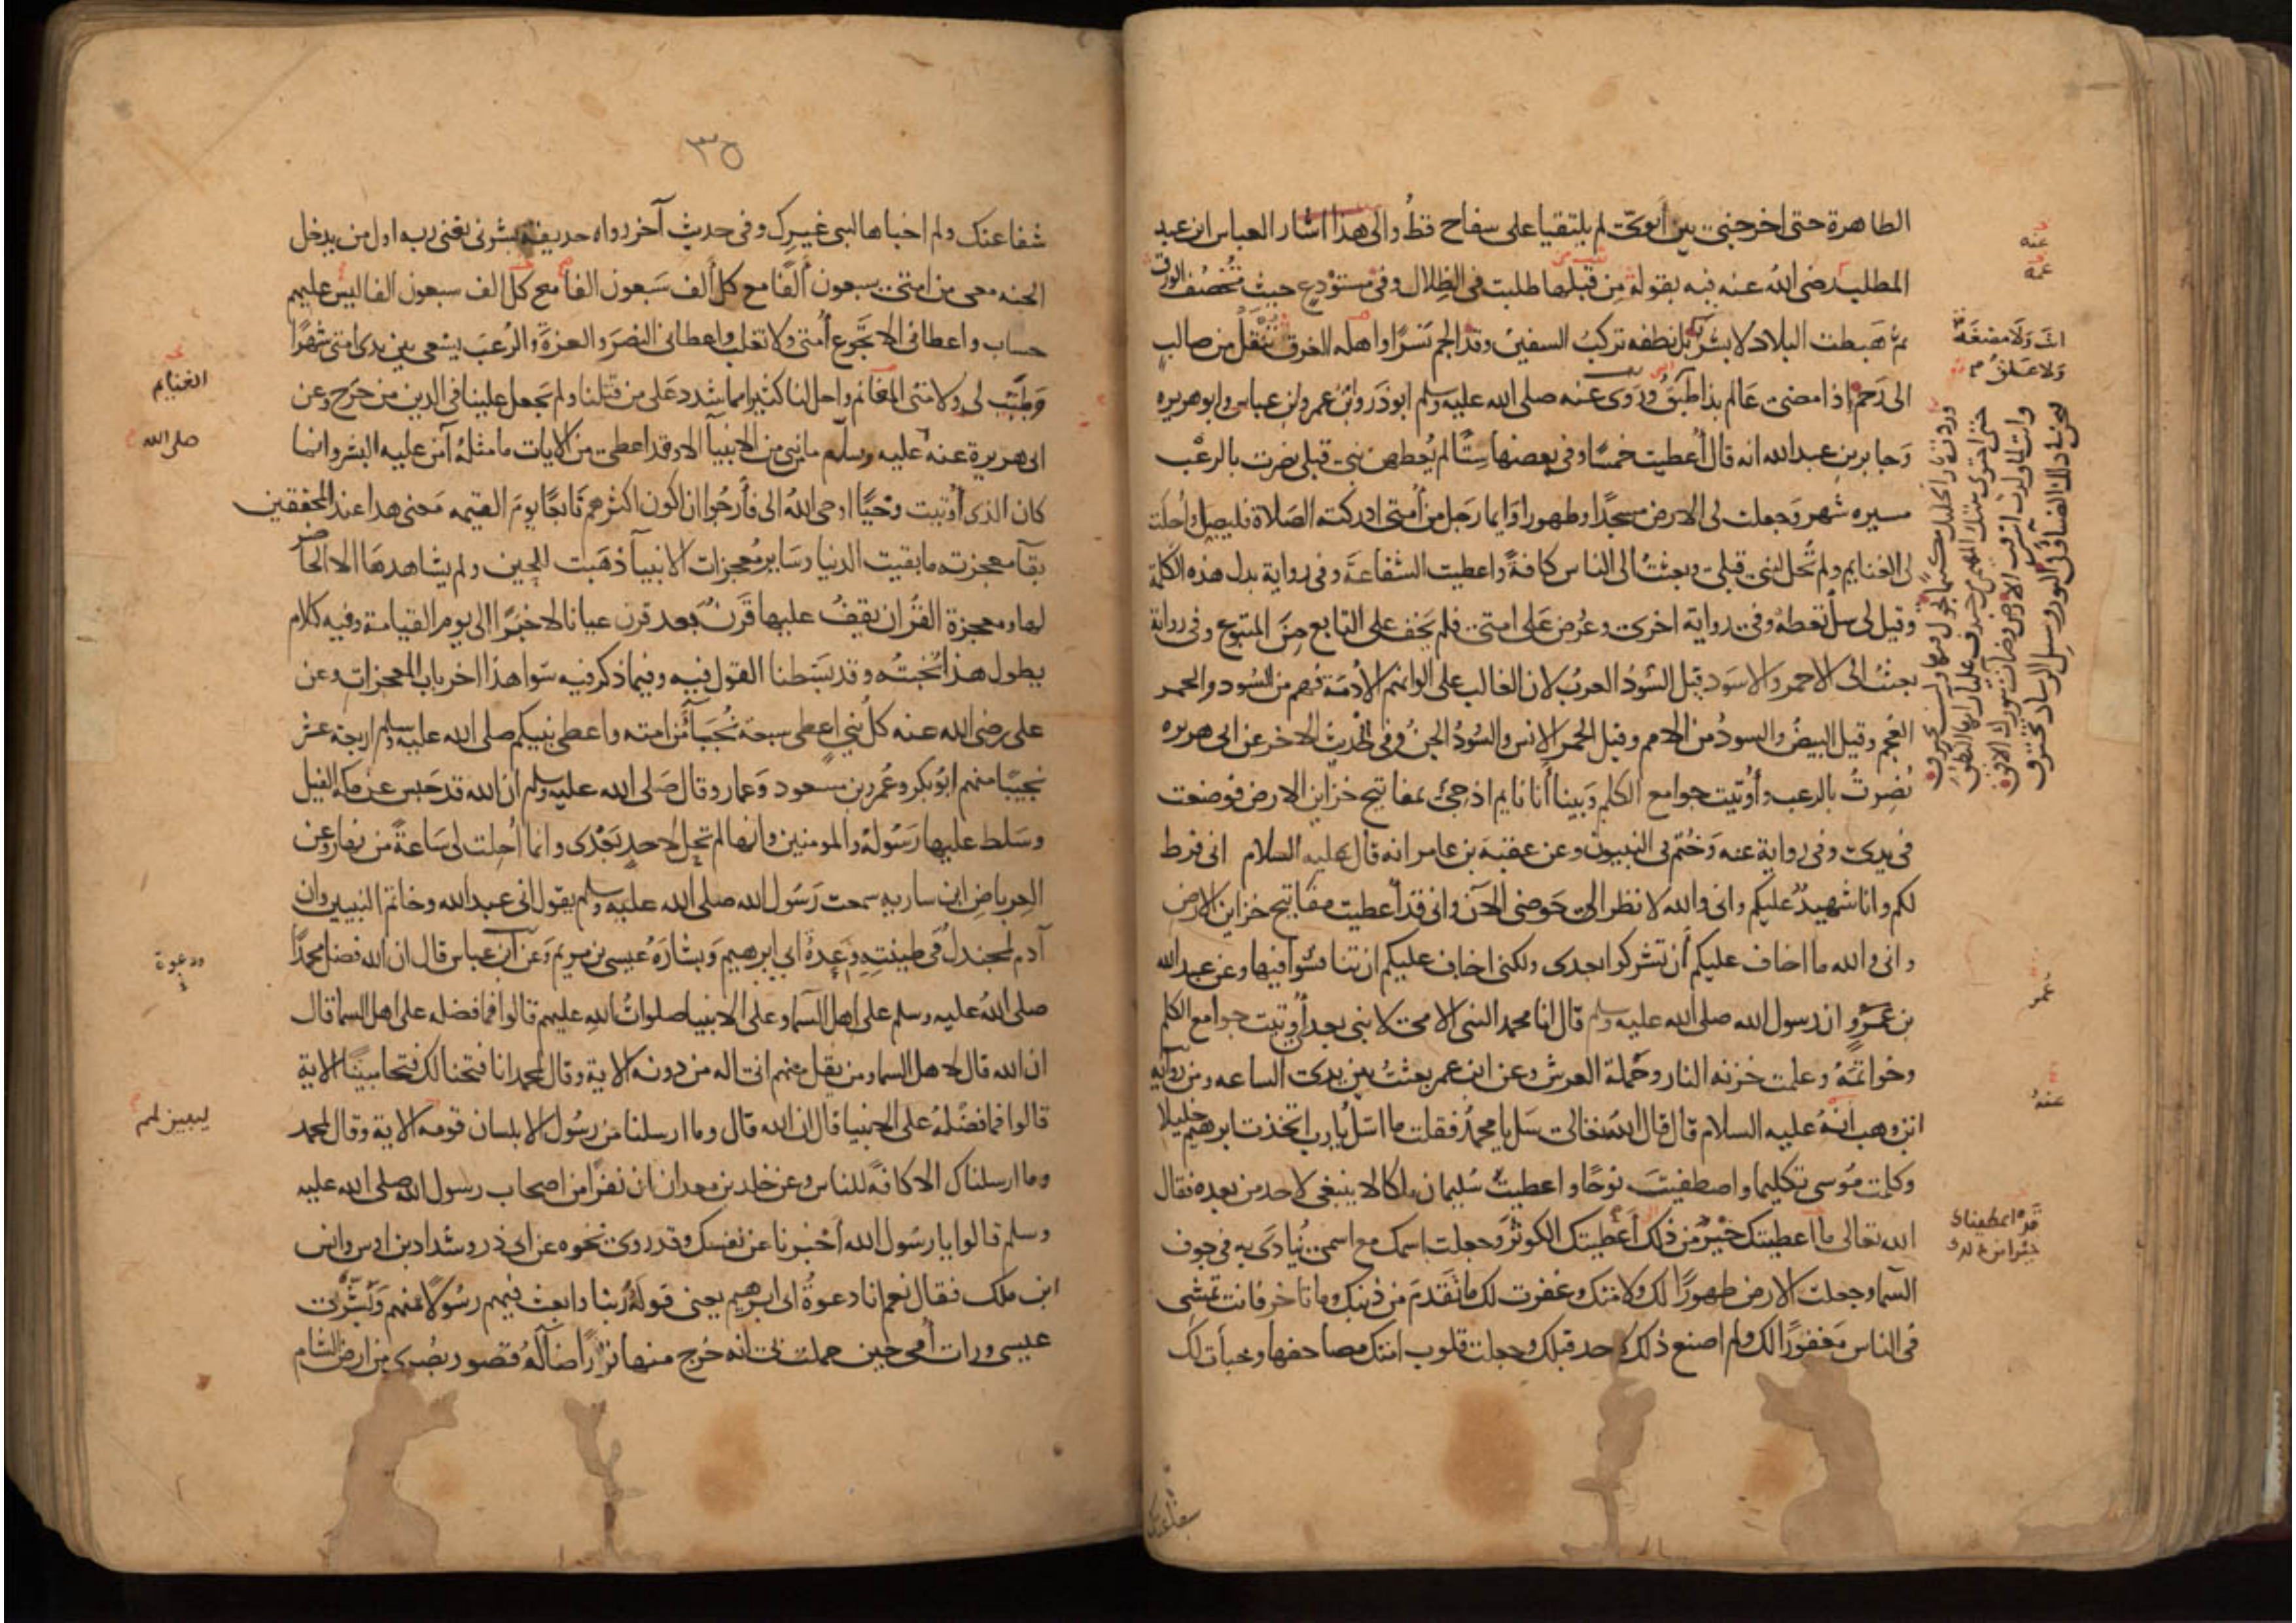 الطاهرة حتى اخرجني من بين أبويّ لم يلتقيا على سفاح قطُ والى هذا اشار العباس ابن عبد
المطلب رضى اللهُ عنه فيه بقوله مِن قبلها طبت فى الظلال وفى مستودع حيث تُخصَفُ الورق
ثم هَبطت البلاد لا بشرٌ بل نطفه تركبُ السفين وقد الجم نَسرًا واهله الغرق تُنقَلُ من صالبٍ
الى رَحمٍ اذا مضى عَالم بذا طَبَقُ ورَوى عنه صلى الله عليه وسلم ابو ذر وابْنُ عمر وابن عباس وابو هريره
وَجابر بن عبد الله انه قال أُعطيت خمسًا وفى بعضها سِتًّا لم يُعطهن نبى قبلى نصرت بالرعْب
مسيره شهر وَجعلت لى الارض مسجدًا وطهورا وَايما رَجل من أُمتى ادركته الصَلاة فليصل واُحلت
لى الغنايم ولم تُحل لنبى قبلى وبعثتُ الى الناس كافةً واعطيت الشفاعةَ وفى رواية بدل هذه الكلمة
وقيل لى سل تعطه وفى رواية اخرى وعُرض عَلى امتى فلم يَخف على التابع مِنَ المتبوع وفى رواية
بعثتُ الى الاحمر والاسوَد قيل السُودُ العربُ لان الغالب على الوانهم الأُدمَة فهم من السُود والحمر
العَجم وقيل البيضُ والسودُ من الامم وقيل الحمر الانس والسُودُ الجنُ وفى الحديث الاخر عن ابى هريره
نُصِرتُ بالرعب وأُوتيت جوامع الكلم وَبينا أنا نايم اذ جئ بمفاتيح خزاين الارض فوضعت
فى يدى وفى رواية عنه وَخُتم بى النبيون وعن عقبةَ بن عامر انه قال عليه السلام انى فرط
لكم وانا شهيدٌ عليكم وانى والله لانظر الى حَوضى الآن وانى قد اعطيت مفاتيح خزاين الارض
وانى والله ما اخاف عليكم أن تشركوا بعدى ولكنى اخاف عليكم ان تنافسُوا فيها وعن عبد الله
بن عَمْروٍ ان رسول الله صلى الله عليه وسلم قال انا محمد النبى الامى لا نبى بعدى أُوتيت جوامع الكلم
وخواتمَهُ وعلمت خزنه النار وحَملة العرش وعن ابن عمر بعثتُ بين يدى الساعه ومن رواية
ابن وهب انهُ عليه السلام قال قال اللهُ تعالى سَل يا محمدُ فقلت ما اسَلُ يا رب اتخذت ابرهيم خليلا
وكلمت مُوسى تكليما واصطفيتَ نوحًا واعطيت سُليمان ملكا لا ينبغى لاحد من بعده فقال
الله تعالى ما اعطيتك خيْرٌ من ذلك أعطيتك الكوثر وَجعلت اسمك مع اسمى يُنادَى به فى جوف
السما وجعلت الارض طهورًا لك ولامتك وغفرت لك ما تقدمَ من ذنبك وما تاخر فانت تمشى
فى الناس مَغفورًا لك ولم اصنع ذلك لاحد قبلك وجعلت قلوب امتك مصاحفها وخبأت لك
عنه
عمه
انتَ وَلَا مضغَةٌ
وَلا عَلقٌ
وردت نار الخليل مكتتما تجول فيها ولست تحترق
حتى احتوى بيتك المهيمن من خندف علياء تحتها النطق
وانت لما ولدت اشرقت الارض وضاءت بنورك الافق
فنحن فى ذلك الضياء وفى النور وسبل الرشاد نخترق
عمر
عنهُ
خيْرا من ذلك
شفاعتك
٣٥
شفاعتك ولم اخباها لنبى غيرك وفى حديثٍ آخر رواه حديفة بشرنى يعنى ربه اول من يدخل
الجنه معى من امتى سبعون ألفًا مع كل ألف سَبعون الفا مع كل الف سبعون الفا ليس عليهم
حساب واعطانى الا تجُوع أُمتى ولا تغلب واعطانى النصرَ والعزةَ والرُعبَ يسْعى بين يدى امتى شهْرًا
وَطيّب لى ولامتى المغانم واحل لنا كثيرا مما شدد عَلى من قبلنا ولم يَجعل علينا فى الدين من حَرَج وعن
ابى هريرة عنهُ عليه وسلم ما نبى من الانبيآ الا وقد اعطى من الايات ما مثلهُ آمن عليه البشر وانما
كان الذى أُوتيت وحْيًا اوحى اللهُ الى فأرجُوا ان اكون اكثرهم تَابعًا يومَ القيمه مَعنى هدا عند المحققين
بقآ معجزته ما بقيت الدنيا وسَاير مُعجزات الانبيآ ذهَبت للحين ولم يشاهدهَا الا الحاضر
لها ومعجزة القرُان يقفُ عليها قَرنٌ بَعد قرن عيانا لا خبَرًا الى يوم القيامة وفيه كلام
يطول هذا نُخبتُه وقد بَسَطنا القول فيه وفيما ذكر فيه سوا هذا اخر باب المعجزات وعن
على رضى الله عنه كلُ نبي اعطى سبعة نُجَبآ من امته واعطى نبيكم صلى الله عليه وسلم اربعة عشر
نجيبًا منهم ابُو بكر وعُمر وبن مسعود وَعمار وقال صَلى الله عليه وسلم ان الله قد حَبس عن مكه الفيل
وسَلط عليها رَسُولهُ والمومنين وانها لم تحِل لاحدٍ بَعْدى وانما أُحِلت لى سَاعةً من نهار وعن
العِرباضِ ابن ساريه سمعت رَسُول الله صلى الله عليه وسلم يقول انى عبد الله وخاتم النبيين وان
آدم لمنجدلٌ فى طينتِهِ وَعِدةُ ابى ابرهيم وَبشارَهُ عيسى بن مريم وعَن ابن عباس قال ان الله فضل محمدًا
صلى اللهُ عليه وسلم على اهل السماء وعلى الانبيا صلواتُ الله عليهم قالوا فما فضله على اهل السما قال
ان الله قال لاهل السما ومن يقل منهم انى اله من دونه الاية وقال لمحمد انا فتحنا لك فتحا مبينًا الاية
قالوا فما فضْلهُ على الانبيا قال ان الله قال وما ارسلنا من رسُول الا بلسان قومه الاية وقال لمحمد
وما ارسلناك الا كافةً للناس وعن خلد بن معدان ان نفرًا من اصحاب رسول الله صلى الله عليه
وسلم قالوا يا رسُول الله أخْبرنا عن نفسك وقد رُوى نحوه عن ابى ذر وشداد بن اوس وانس
ابن ملك فقال نعم انا دعوةُ ابى ابرهيم يعنى قولَهُ ربنا وابعث فيهم رسُولًا منهم وَبشّر بى
عيسى ورات أُمى حين حملت بى انه خَرج منها نورًا ضآلهُ قصور بصْرى من ارض الشام
الغنايم
صلى الله
ودعوة
ليبين لهم